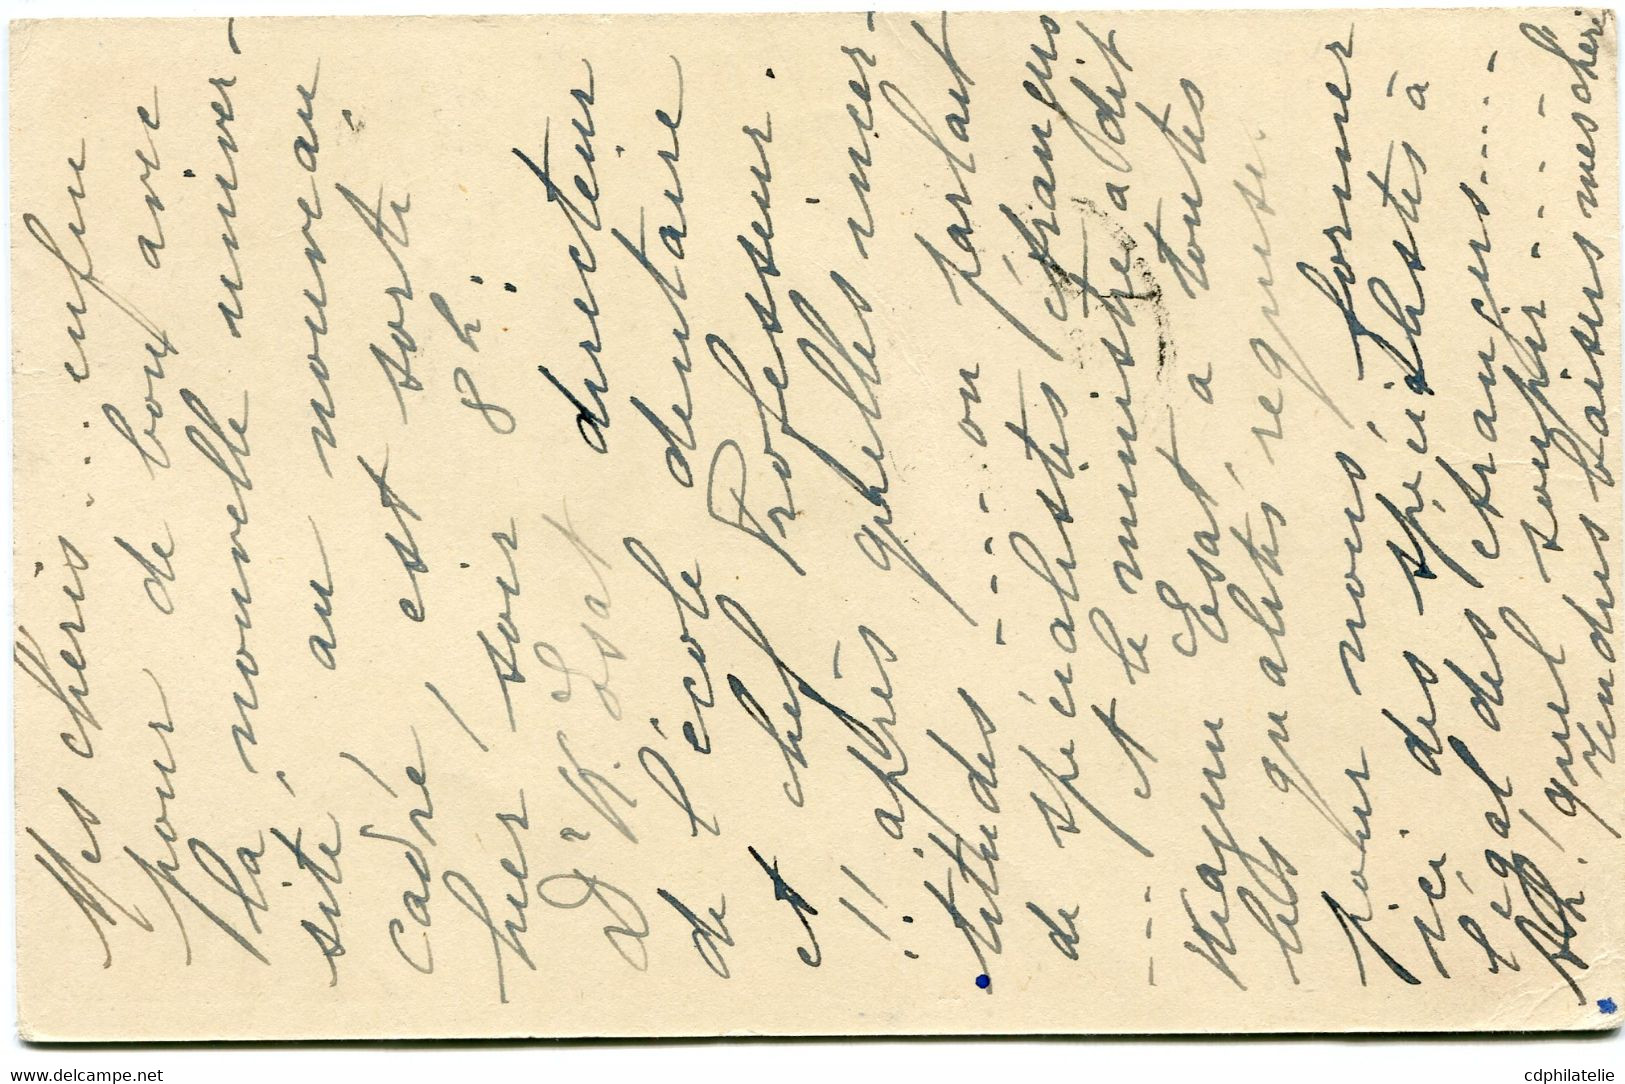 Mes chéris.. enfin
pour de bon avec
la nouvelle univer-
sité, au nouveau
cadre! est sorti
hier soir 8h:
Dr K. Esat directeur
de l'école dentaire
et chef Professeur.
!! après quelles incer-
titudes ---- on parlant
de spécialistes étrangers
--- et le ministre a dit
Kiazim Esat a toutes
les qualités requises.
pour nous former
ici des spécialistes à
l'égal des étrangers.....
Ahh! quel soupir-----
tendres baisers mes chéris
cdphilatelie.com
cdphilatelie